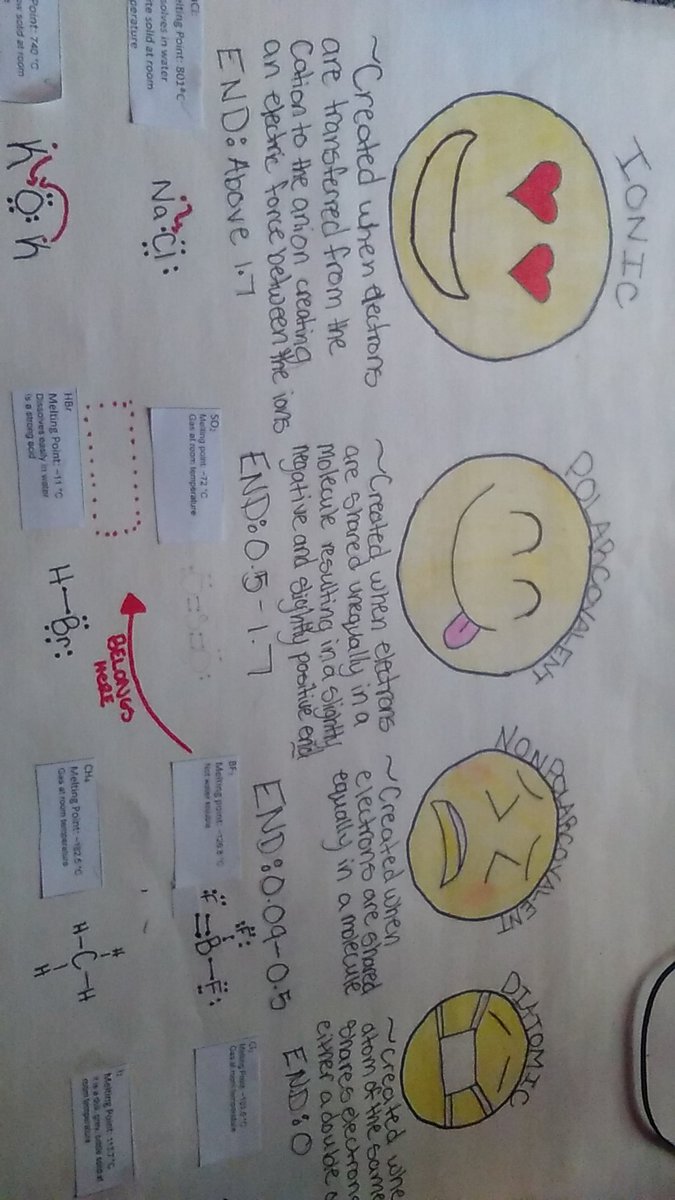 IONIC
~Created when electrons
are transferred from the
Cation to the anion creating
an electric force between the ions
END: Above 1.7
Melting Point: 801°C
solid at room
Na Cl
Point: 740 °C
solid at room
K O K
POLAR COVALENT
~Created when electrons
are shared unequally in a
molecule resulting in a slightly
negative and slightly positive end
END: 0.5-1.7
SO₂
Melting point: -72 °C
Gas at room temperature
BELONGS
HERE
HBr
Melting Point: -11 °C
Dissolves easily in water
Is a strong acid
H-Br
NONPOLAR COVALENT
~Created when
electrons are shared
equally in a molecule
END: 0.09-0.5
BF₃
Melting point: -126.8 °C
Not water soluble
F
F=B-F
CH₄
Melting Point: -182.5 °C
Gas at room temperature
H
H-C-H
H
DIATOMIC
~Created whe
atom of the same
shares electron
either a double
END: 0
Cl₂
Gas at room temperature
I₂
Melting Point: 113.7°C
room temperature